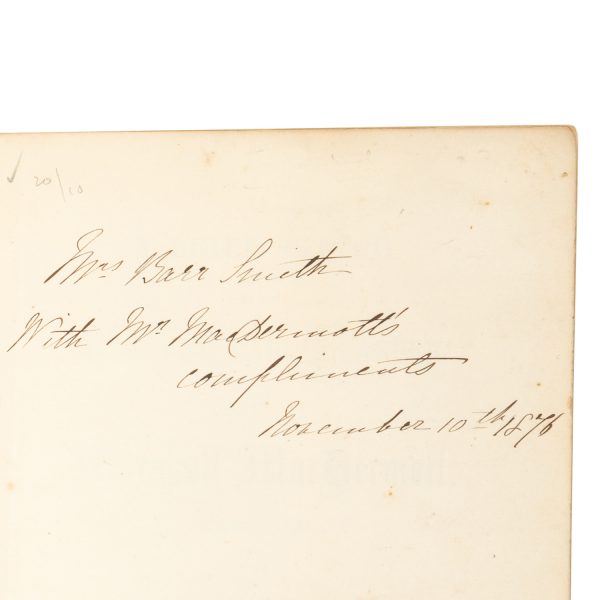 20/10
Mrs Barr Smith
With Mr MacDermott's
compliments
November 10th 1876